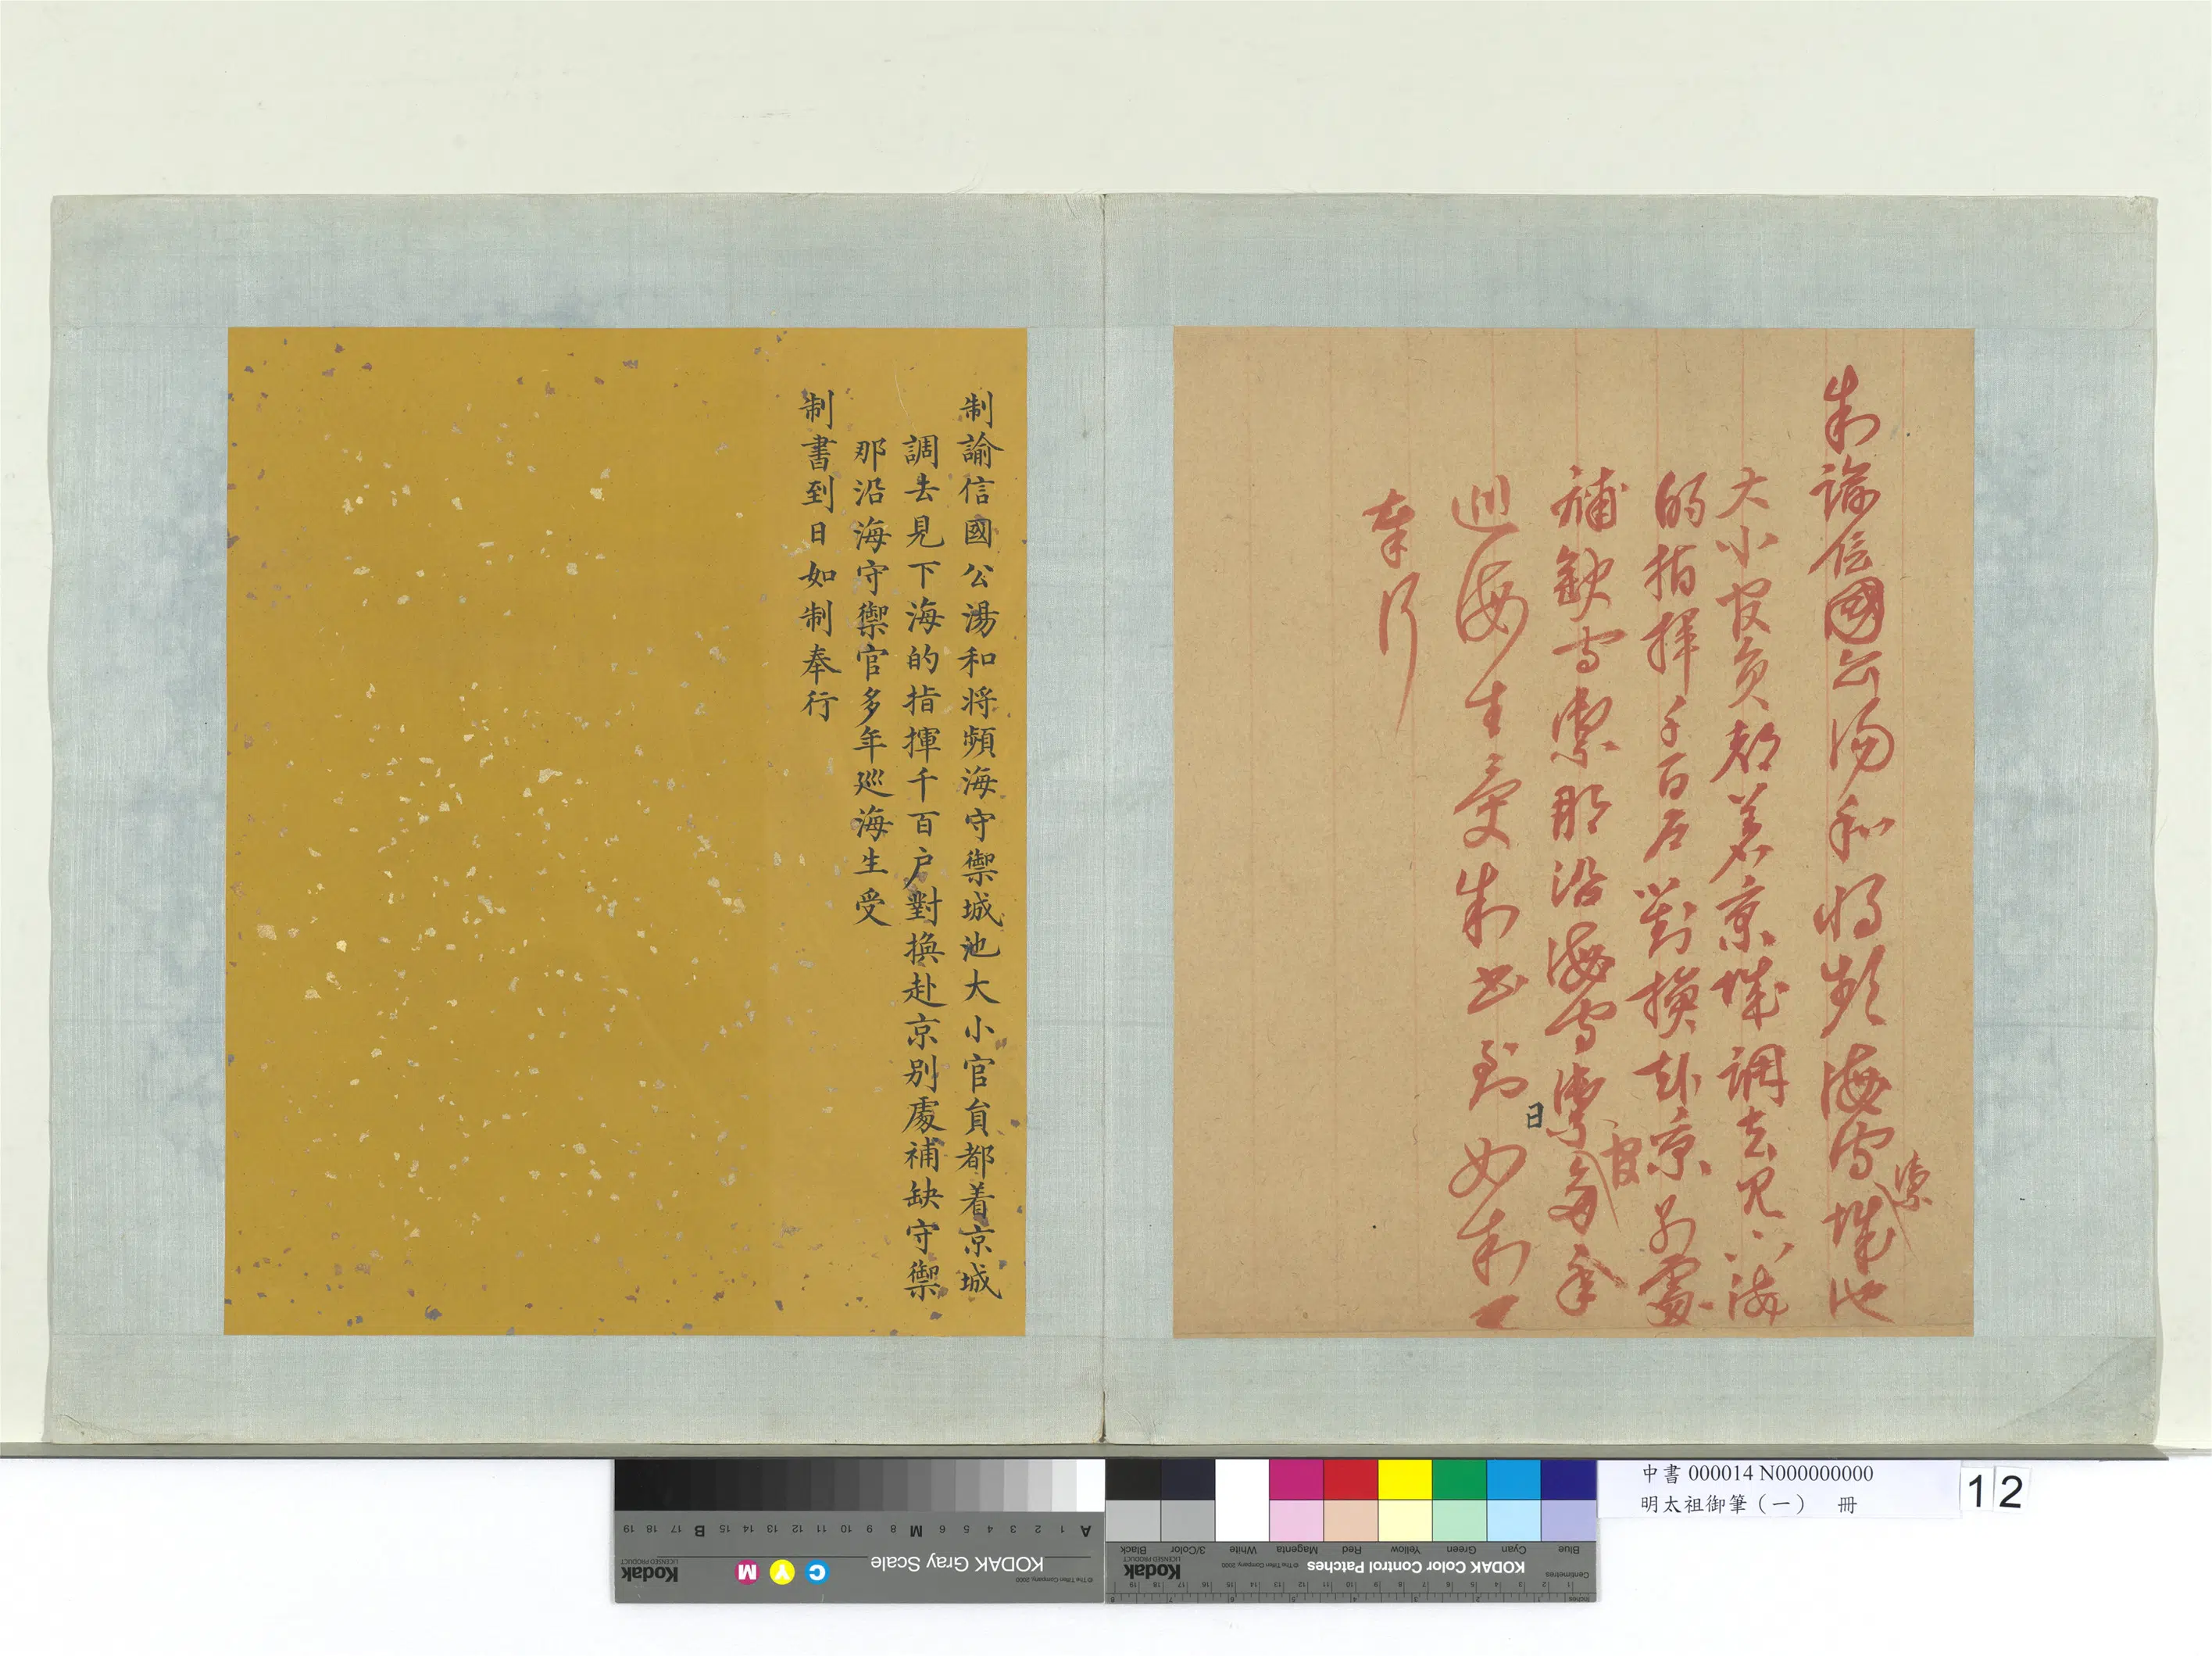 制諭信國公湯和将頻海守城池
禦
大小官員都着京城調去見下海
的指揮千百户對換赴京别處
補缺守禦那沿海守禦多年
官
日
巡海生受制書到如制
奉行
制諭信國公湯和将頻海守禦城池大小官貟都着京城
調去見下海的指揮千百户對換赴京别處補缺守禦
那沿海守禦官多年廵海生受
制書到日如制奉行
中書 000014 N000000000
明太祖御筆（一） 冊
12
KODAK Gray Scale
C Y M
Kodak
LICENSED PRODUCT
© The Tiffen Company, 2000
A 1 2 3 4 5 6 M 8 9 10 11 12 13 14 15 B 17 18 19
KODAK Color Control Patches
© The Tiffen Company, 2000
Kodak
LICENSED PRODUCT
Blue Cyan Green Yellow Red Magenta White 3/Color Black
Centimetres
Inches